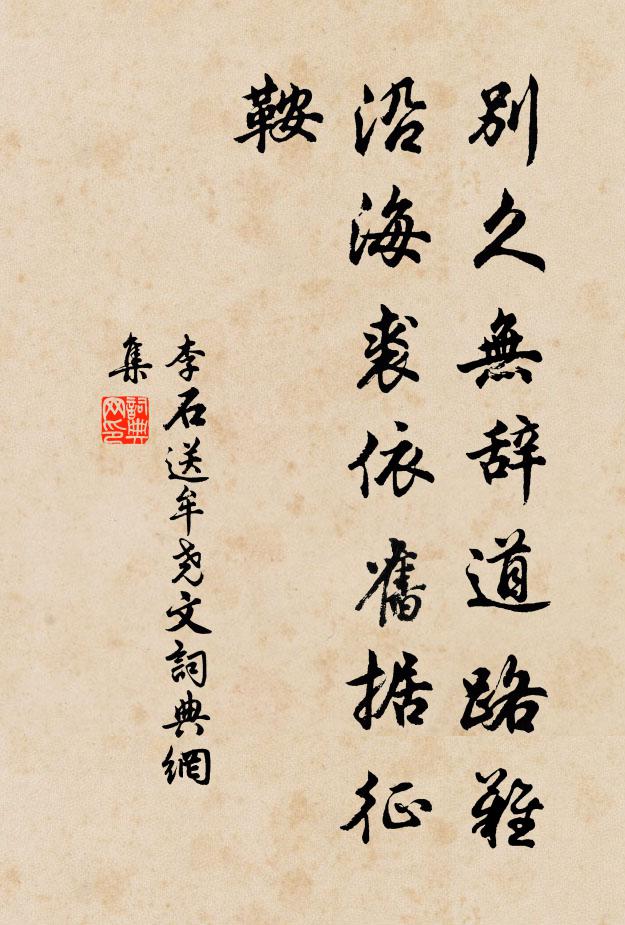 別久無辞道路難
沿海裘依舊据征
鞍
李石送牟尧文詞典網
集
詞典網印